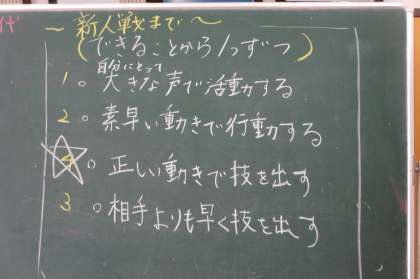 〜新人戦まで〜
(できることから1つずつ)
自分にとって
1 。大きな声で活動する
2 。素早い動きで行動する
4 。正しい動きで技を出す
3 。相手よりも早く技を出す